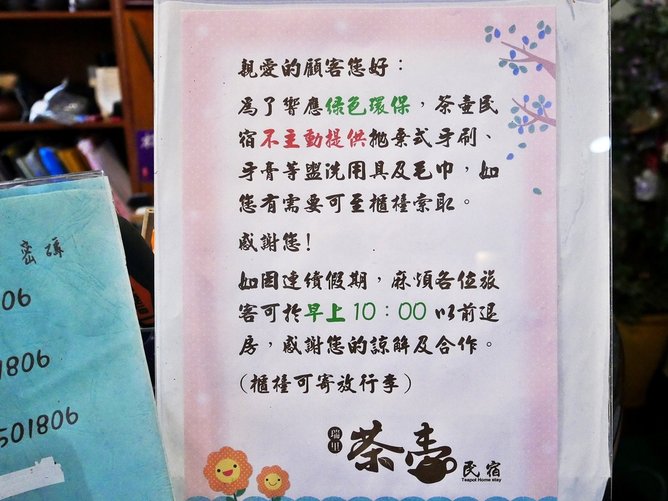 親愛的顧客您好：
為了響應綠色環保，茶壺民
宿不主動提供拋棄式牙刷、
牙膏等盥洗用具及毛巾，如
您有需要可至櫃檯索取。
感謝您!
如因連續假期，麻煩各位旅
客可於早上10：00以前退
房，感謝您的諒解及合作。
(櫃檯可寄放行李)
瑞里
茶壺
民宿
Teapot Home stay
密碼
06
1806
501806